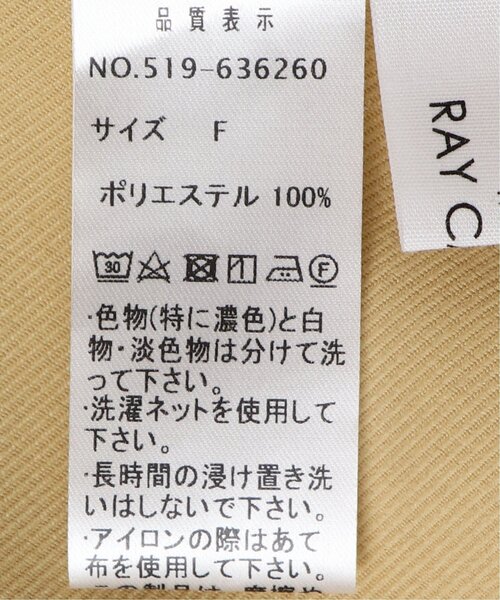 品質表示
NO.519-636260
サイズ F
ポリエステル 100%
30
F
・色物(特に濃色)と白
物・淡色物は分けて洗
って下さい。
・洗濯ネットを使用して
下さい。
・長時間の浸け置き洗
いはしないで下さい。
・アイロンの際はあて
布を使用して下さい。
RAY